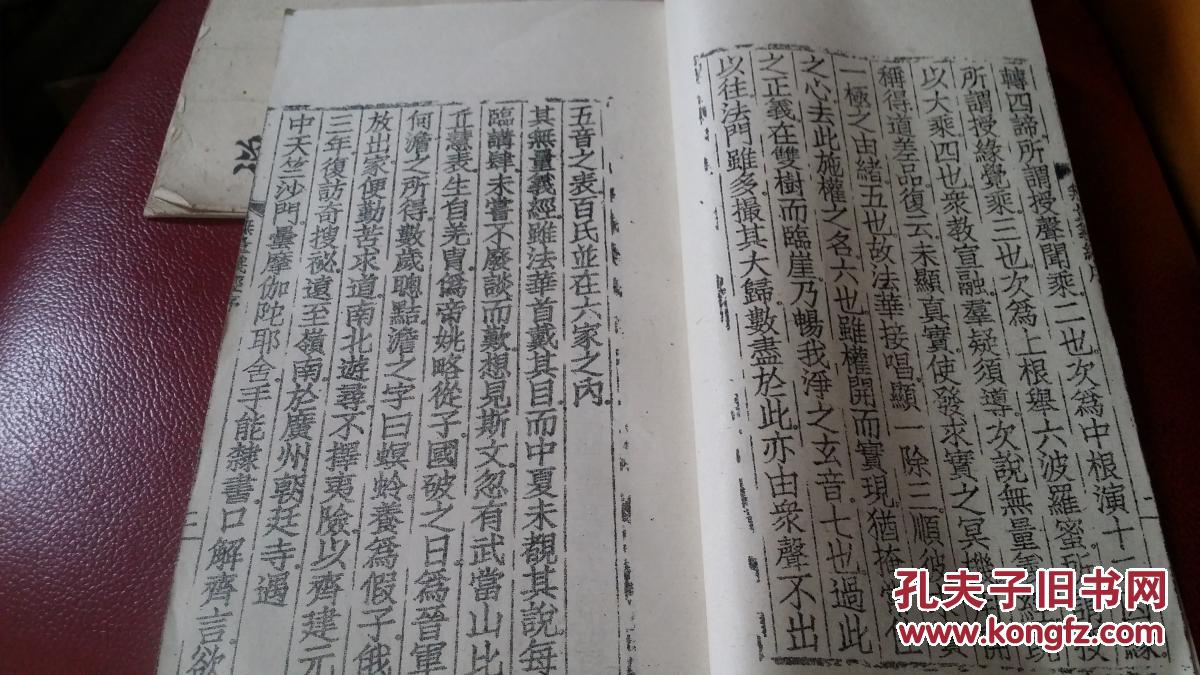 轉四諦所謂授聲聞乘二也次爲中根演十二
所謂授緣覺乘三也次爲上根舉六波羅蜜所
以大乘四也衆教宣融羣疑須導次說無量
稱得道差品復云未顯真實使發求實之冥機
一極之由緒五也故法華接唱顯一除三順
之心去此施權之名六也雖權開而實現猶掩
之正義在雙樹而臨崖乃暢我淨之玄音七也過此
以往法門雖多撮其大歸數盡於此亦由衆聲不出
五音之表百氏並在六家之內
其無量義經雖法華首戴其目而中夏未覩其說每
臨講肆未嘗不廢談而歎想見斯文忽有武當山比
丘慧表生自羌胄僞帝姚略從子國破之日爲晉軍
何澹之所得數歲聰黠澹之字曰螟蛉養爲假子俄
放出家便勤苦求道南北遊尋不擇夷險以齊建元
三年復訪奇搜祕遠至嶺南於廣州朝廷寺遇
中天竺沙門曇摩伽陀耶舍手能隸書口解齊言欲
孔夫子旧书网
www.kongfz.com